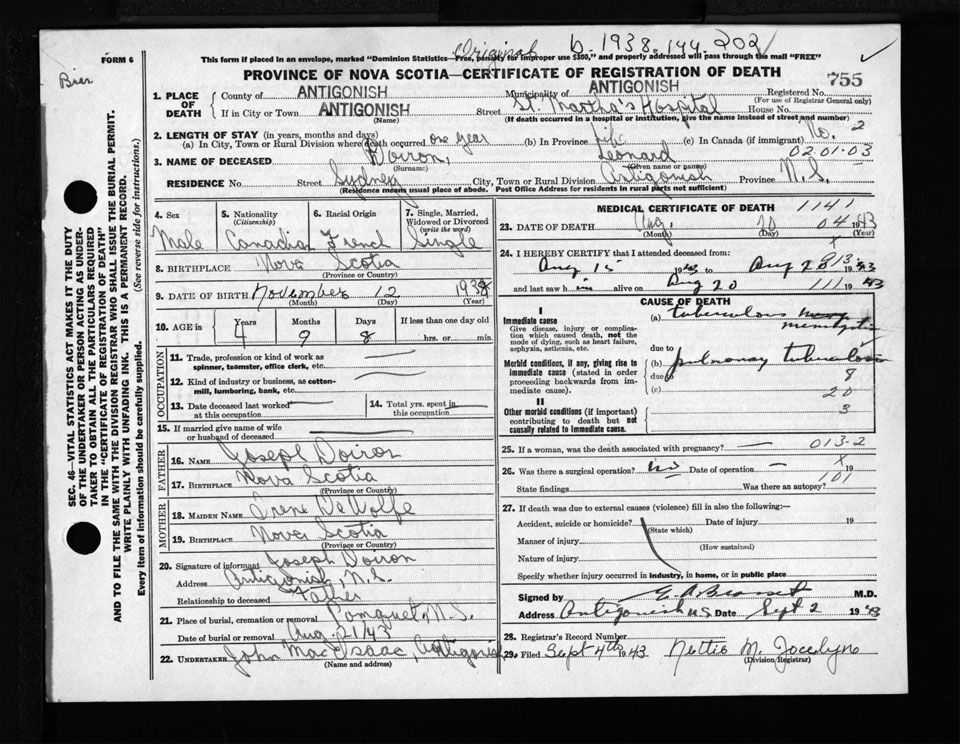 Original b. 1938. 144. 202
FORM 6
This form if placed in an envelope, marked "Dominion Statistics—Free, penalty for improper use $300," and properly addressed will pass through the mail "FREE"
PROVINCE OF NOVA SCOTIA—CERTIFICATE OF REGISTRATION OF DEATH
755
1. PLACE OF DEATH
County of ANTIGONISH Municipality of ANTIGONISH Registered No.
(For use of Registrar General only)
If in City or Town ANTIGONISH Street St. Martha's Hospital House No.
(Name) (If death occurred in a hospital or institution, give name instead of street and number)
2. LENGTH OF STAY (in years, months and days) No. 2
(a) In City, Town or Rural Division where death occurred one year (b) In Province life (c) In Canada (if immigrant)
3. NAME OF DECEASED Doiron, Leonard 02.01-03
(Surname) (Given name or names)
RESIDENCE No. Street Sydney City, Town or Rural Division Antigonish Province N.S.
(Residence means usual place of abode. Post Office Address for residents in rural parts not sufficient)
4. Sex Male
5. Nationality (Citizenship) Canadian
6. Racial Origin French
7. Single, Married, Widowed or Divorced (write the word) Single
8. BIRTHPLACE Nova Scotia
(Province or Country)
9. DATE OF BIRTH November 12 1938
(Month) (Day) (Year)
10. AGE in Years Months Days If less than one day old
4 9 8 hrs. or min.
OCCUPATION
11. Trade, profession or kind of work as spinner, teamster, office clerk, etc.
12. Kind of industry or business, as cotton-mill, lumbering, bank, etc.
13. Date deceased last worked at this occupation
14. Total yrs. spent in this occupation
15. If married give name of wife or husband of deceased
FATHER
16. NAME Joseph Doiron
17. BIRTHPLACE Nova Scotia
(Province or Country)
MOTHER
18. MAIDEN NAME Irene DeWolfe
19. BIRTHPLACE Nova Scotia
(Province or Country)
20. Signature of informant Joseph Doiron
Address Antigonish, N.S.
Relationship to deceased Father
21. Place of burial, cremation or removal Pomquet, N.S.
Date of burial or removal Aug. 21/43
22. UNDERTAKER John MacIsaac, Antigonish
(Name and address)
MEDICAL CERTIFICATE OF DEATH 1141
23. DATE OF DEATH Aug. 20 04 1943
(Month) (Day) (Year)
24. I HEREBY CERTIFY that I attended deceased from:
Aug 15 1943 to Aug 20 13 1943
and last saw him alive on Aug 20 111 1943
CAUSE OF DEATH
I
Immediate cause
Give disease, injury or complication which caused death, not the mode of dying, such as heart failure, asphyxia, asthenia, etc.
(a) tuberculous meningitis
due to
Morbid conditions, if any, giving rise to immediate cause (stated in order proceeding backwards from immediate cause).
(b) pulmonary tuberculosis
due to 8
(c) 20
II
Other morbid conditions (if important) contributing to death but not causally related to immediate cause.
3
25. If a woman, was the death associated with pregnancy? 013-2
26. Was there a surgical operation? no Date of operation — X 19
State findings Was there an autopsy? 01
27. If death was due to external causes (violence) fill in also the following:—
Accident, suicide or homicide? Date of injury 19
(State which)
Manner of injury
(How sustained)
Nature of injury
Specify whether injury occurred in industry, in home, or in public place
Signed by M.D.
Address Antigonish N.S. Date Sept 2 1943
28. Registrar's Record Number
29. Filed Sept 4th 1943 Nettie M. Jocelyne
(Division Registrar)
SEC. 46—VITAL STATISTICS ACT MAKES IT THE DUTY
OF THE UNDERTAKER OR PERSON ACTING AS UNDERTAKER TO OBTAIN ALL THE PARTICULARS REQUIRED
IN THE "CERTIFICATE OF REGISTRATION OF DEATH"
AND TO FILE THE SAME WITH THE DIVISION REGISTRAR WHO SHALL ISSUE THE BURIAL PERMIT.
WRITE PLAINLY WITH UNFADING INK. THIS IS A PERMANENT RECORD.
Every item of information should be carefully supplied. (See reverse side for instructions.)